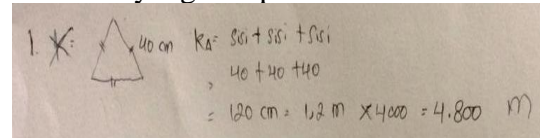 1. K = 40 cm K△ = Sisi + Sisi + Sisi
= 40 + 40 + 40
= 120 cm = 1,2 m × 4000 = 4.800 m